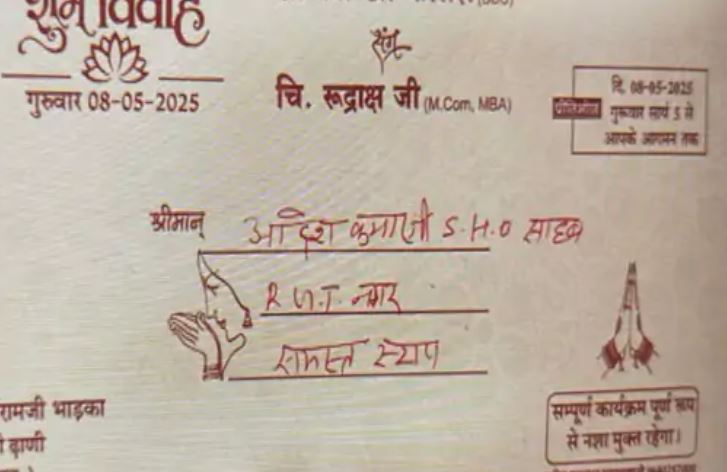 शुभ विवाह
गुरुवार 08-05-2025
संग
चि. रूद्राक्ष जी (M.Com, MBA)
दि. 08-05-2025
गुरूवार सायं 5 से
आपके आगमन तक
श्रीमान्
आदेश कुमारजी S.H.O साहब
नगर
समस्त स्टाफ
रामजी भाड़का
ढाणी
सम्पूर्ण कार्यक्रम पूर्ण रूप
से नशा मुक्त रहेगा।